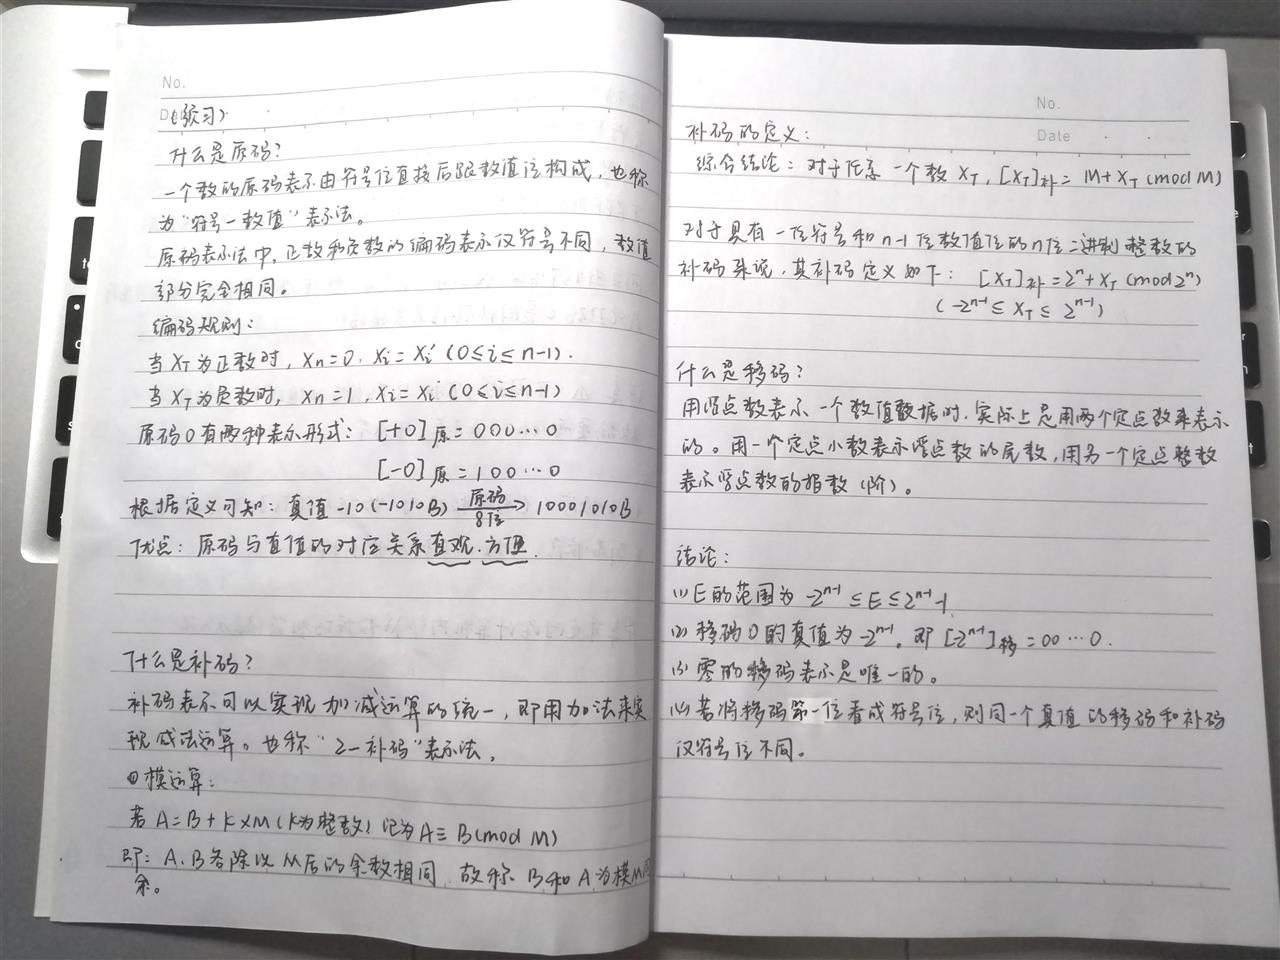 No.
Date
(预习)
什么是原码?
一个数的原码表示由符号位直接后跟数值位构成,也称
为“符号—数值”表示法。
原码表示法中,正数和负数的编码表示仅符号不同,数值
部分完全相同。
编码规则:
当 X_T 为正数时, Xn=0, Xi=Xi' (0≤i≤n-1).
当 X_T 为负数时, Xn=1, Xi=Xi' (0≤i≤n-1)
原码0有两种表示形式: [+0]原=000…0
[-0]原=100…0
根据定义可知: 真值 -10 (-1010B) 原码 8位 → 10001010B
优点: 原码与真值的对应关系直观、方便.
什么是补码?
补码表示可以实现加减运算的统一,即用加法来实
现减法运算。也称“2—补码”表示法,
模运算:
若 A=B+K×M (K为整数) 记为 A≡B(mod M)
即: A、B各除以M后的余数相同,故称 B和A为模M同
余。
No.
Date
补码的定义:
综合结论: 对于任意一个数 X_T, [X_T]补=M+X_T (mod M)
对于具有一位符号和n-1位数值位的n位二进制整数的
补码来说,其补码定义如下: [X_T]补=2ⁿ+X_T (mod 2ⁿ)
(-2ⁿ⁻¹≤X_T≤2ⁿ⁻¹)
什么是移码?
用浮点数表示一个数值数据时,实际上是用两个定点数来表示
的。用一个定点小数表示浮点数的尾数,用另一个定点整数
表示浮点数的指数(阶)。
结论:
(1) E的范围为 -2ⁿ⁻¹≤E≤2ⁿ⁻¹-1.
(2) 移码0的真值为-2ⁿ⁻¹, 即[-2ⁿ⁻¹]移=00…0.
(3) 零的移码表示是唯一的。
(4) 若将移码第一位看成符号位,则同一个真值的移码和补码
仅符号位不同。